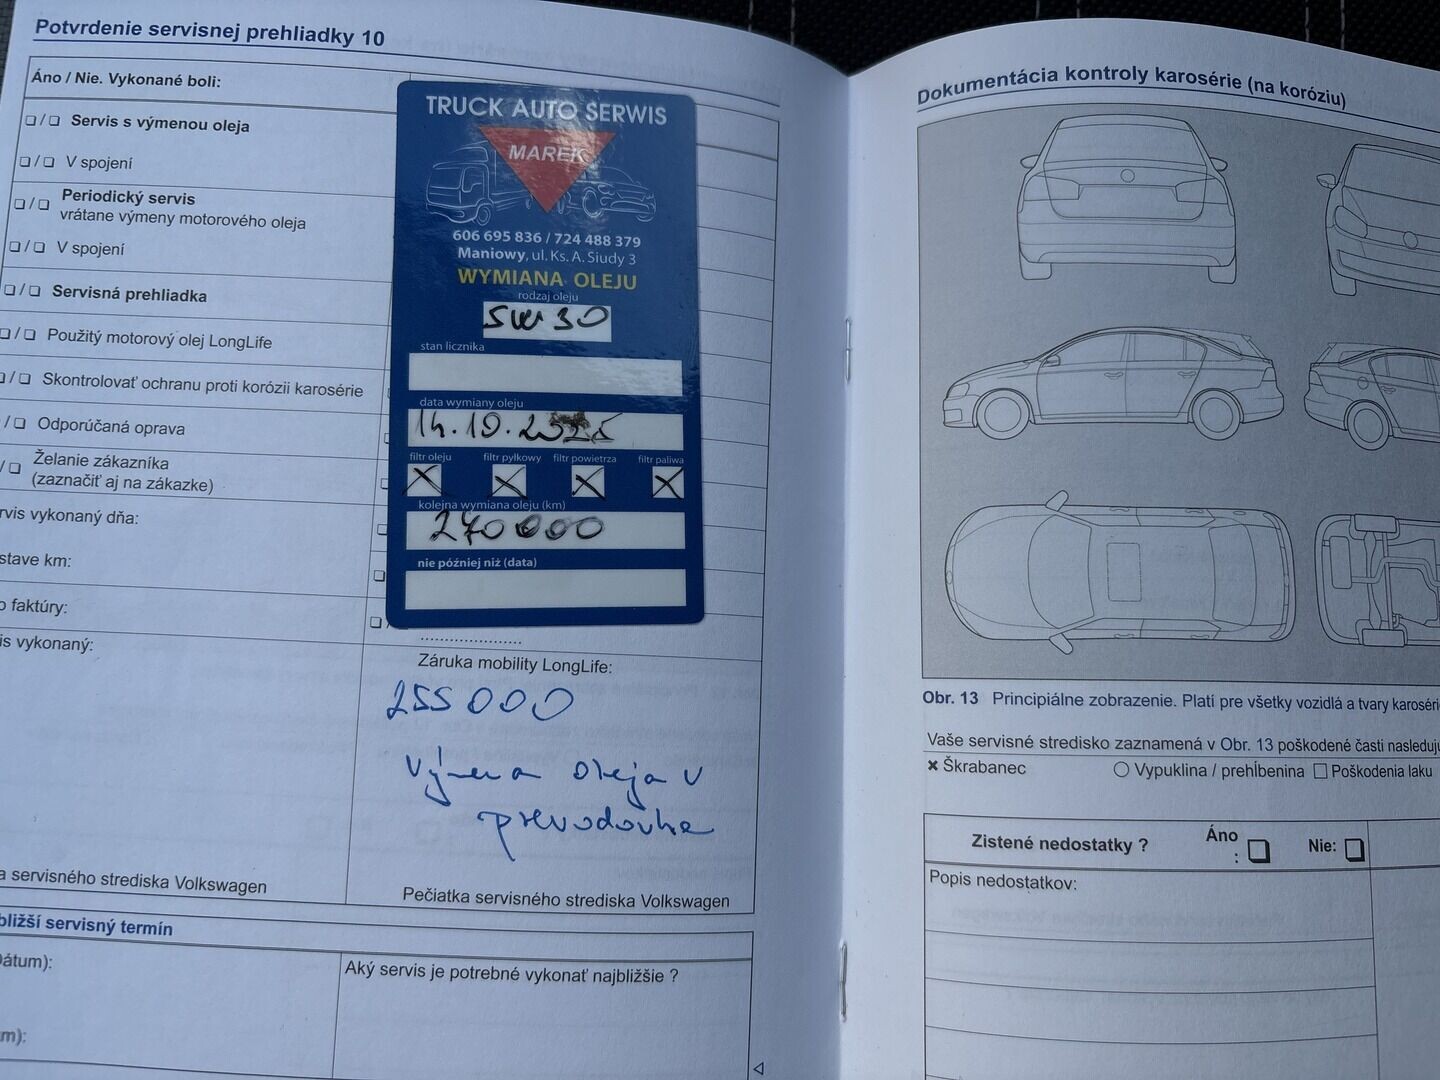 Potvrdenie servisnej prehliadky 10
Áno / Nie. Vykonané boli:
❏ / ❏ Servis s výmenou oleja
❏ / ❏ V spojení
❏ / ❏ Periodický servis
vrátane výmeny motorového oleja
❏ / ❏ V spojení
❏ / ❏ Servisná prehliadka
❏ / ❏ Použitý motorový olej LongLife
❏ / ❏ Skontrolovať ochranu proti korózii karosérie
/ ❏ Odporúčaná oprava
/ ❏ Želanie zákazníka
(zaznačiť aj na zákazke)
rvis vykonaný dňa:
stave km:
o faktúry:
is vykonaný:
a servisného strediska Volkswagen
TRUCK AUTO SERWIS
MAREK
606 695 836 / 724 488 379
Maniowy, ul. Ks. A. Siudy 3
WYMIANA OLEJU
rodzaj oleju
5W30
stan licznika
data wymiany oleju
14.10.
filtr oleju filtr pyłkowy filtr powietrza filtr paliwa
X X X X
kolejna wymiana oleju (km)
270000
nie później niż (data)
Záruka mobility LongLife:
255000
Výmena oleja v
prevodovke
Pečiatka servisného strediska Volkswagen
bližší servisný termín
Dátum):
m):
Aký servis je potrebné vykonať najbližšie ?
Dokumentácia kontroly karosérie (na koróziu)
Obr. 13 Principiálne zobrazenie. Platí pre všetky vozidlá a tvary karosérie
Vaše servisné stredisko zaznamená v Obr. 13 poškodené časti nasleduju
× Škrabanec ○ Vypuklina / prehĺbenina □ Poškodenia laku
Zistené nedostatky ? Áno : ❏ Nie: ❏
Popis nedostatkov: